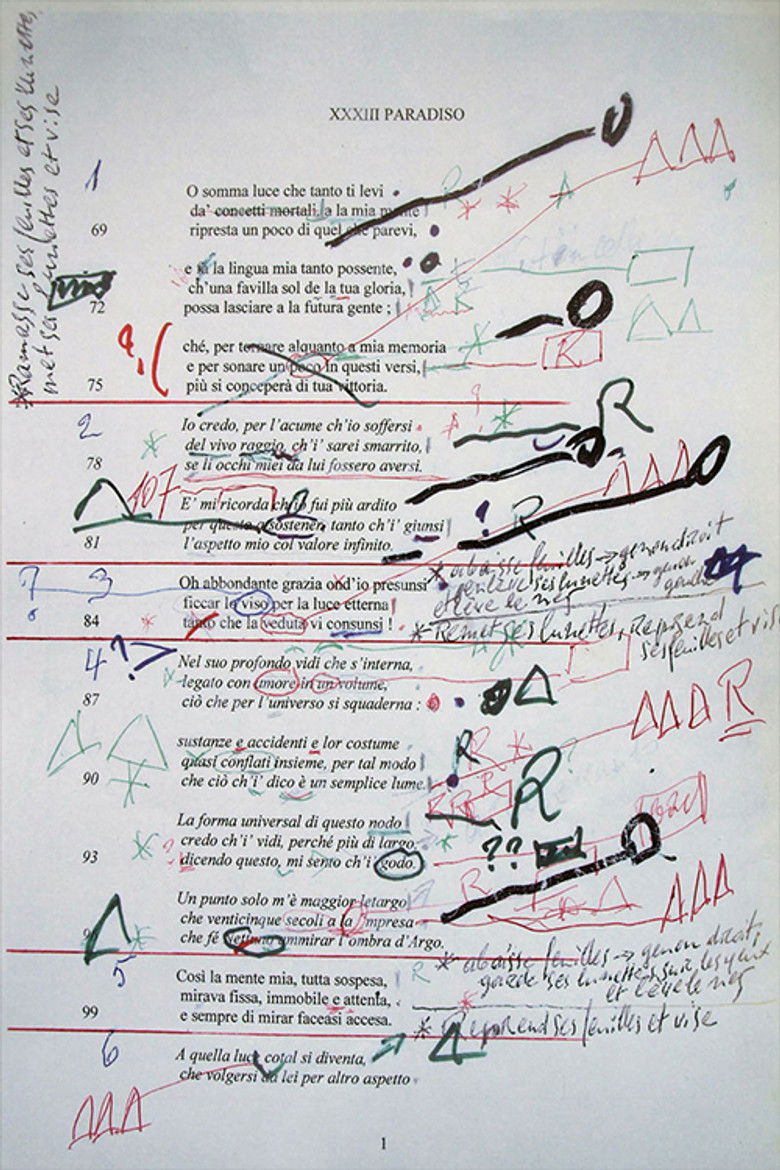 *Ramasse ses feuilles et ses lunettes,
met ses lunettes et vise
XXXIII PARADISO
1
O somma luce che tanto ti levi
da' concetti mortali, a la mia mente
69
ripresta un poco di quel che parevi,
e fa la lingua mia tanto possente,
ch'una favilla sol de la tua gloria,
72
possa lasciare a la futura gente ;
ché, per tornare alquanto a mia memoria
e per sonare un poco in questi versi,
75
più si conceperà di tua vittoria.
2
Io credo, per l'acume ch'io soffersi
del vivo raggio, ch'i' sarei smarrito,
78
se li occhi miei da lui fossero aversi.
107
E' mi ricorda ch'io fui più ardito
per questo a sostener, tanto ch'i' giunsi
81
l'aspetto mio col valore infinito.
* abaisse feuilles → genou droit
enlève ses lunettes → genou gauche
et lève le nez
3
Oh abbondante grazia ond'io presunsi
ficcar lo viso per la luce etterna
84
tanto che la veduta vi consunsi !
* Remet ses lunettes, Reprend
ses feuilles et vise
4?
Nel suo profondo vidi che s'interna,
legato con amore in un volume,
87
ciò che per l'universo si squaderna :
sustanze e accidenti e lor costume
quasi conflati insieme, per tal modo
90
che ciò ch'i' dico è un semplice lume.
La forma universal di questo nodo
credo ch'i' vidi, perché più di largo,
93
dicendo questo, mi sento ch'i' godo.
??
Un punto solo m'è maggior letargo
che venticinque secoli a la impresa
che fé Nettuno ammirar l'ombra d'Argo.
* abaisse feuilles → genou droit,
garde ses lunettes sur les yeux
et lève le nez
5
Così la mente mia, tutta sospesa,
mirava fissa, immobile e attenta,
99
e sempre di mirar faceasi accesa.
* Reprend ses feuilles et vise
6
A quella luce cotal si diventa,
che volgersi da lei per altro aspetto
1